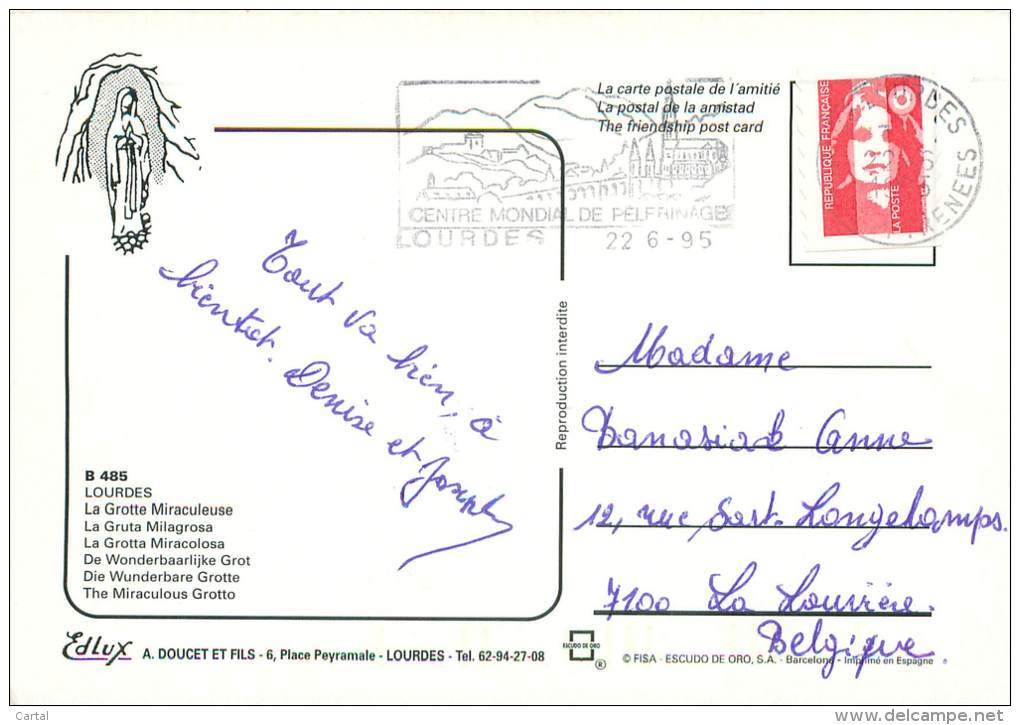 La carte postale de l'amitié
La postal de la amistad
The friendship post card
CENTRE MONDIAL DE PELERINAGE
LOURDES 22 6-95
REPUBLIQUE FRANÇAISE
LA POSTE
LOURDES
Tout va bien, à
bientôt. Denise et Joseph
Reproduction interdite
Madame
Anne
12, rue Sart Longchamps.
7100 La Louvière.
Belgique
B 485
LOURDES
La Grotte Miraculeuse
La Gruta Milagrosa
La Grotta Miracolosa
De Wonderbaarlijke Grot
Die Wunderbare Grotte
The Miraculous Grotto
EdLux A. DOUCET ET FILS - 6, Place Peyramale - LOURDES - Tel. 62-94-27-08
ESCUDO DE ORO
®
© FISA - ESCUDO DE ORO, S.A. - Barcelona - Imprimé en Espagne
Cartal
delcampe.net